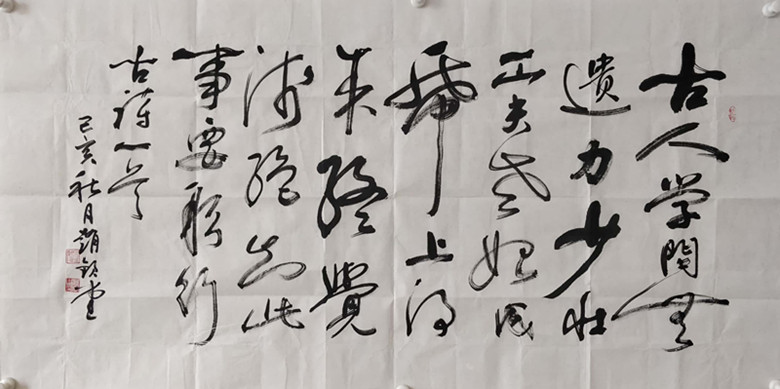 古人学问無
遗力少壮
工夫老始成
帋上得
来终覺
浅绝知此
事要躬行
古诗一首
己亥秋月趙堂